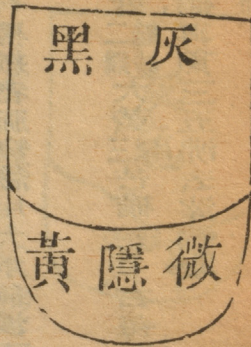 灰黑
微隱黃